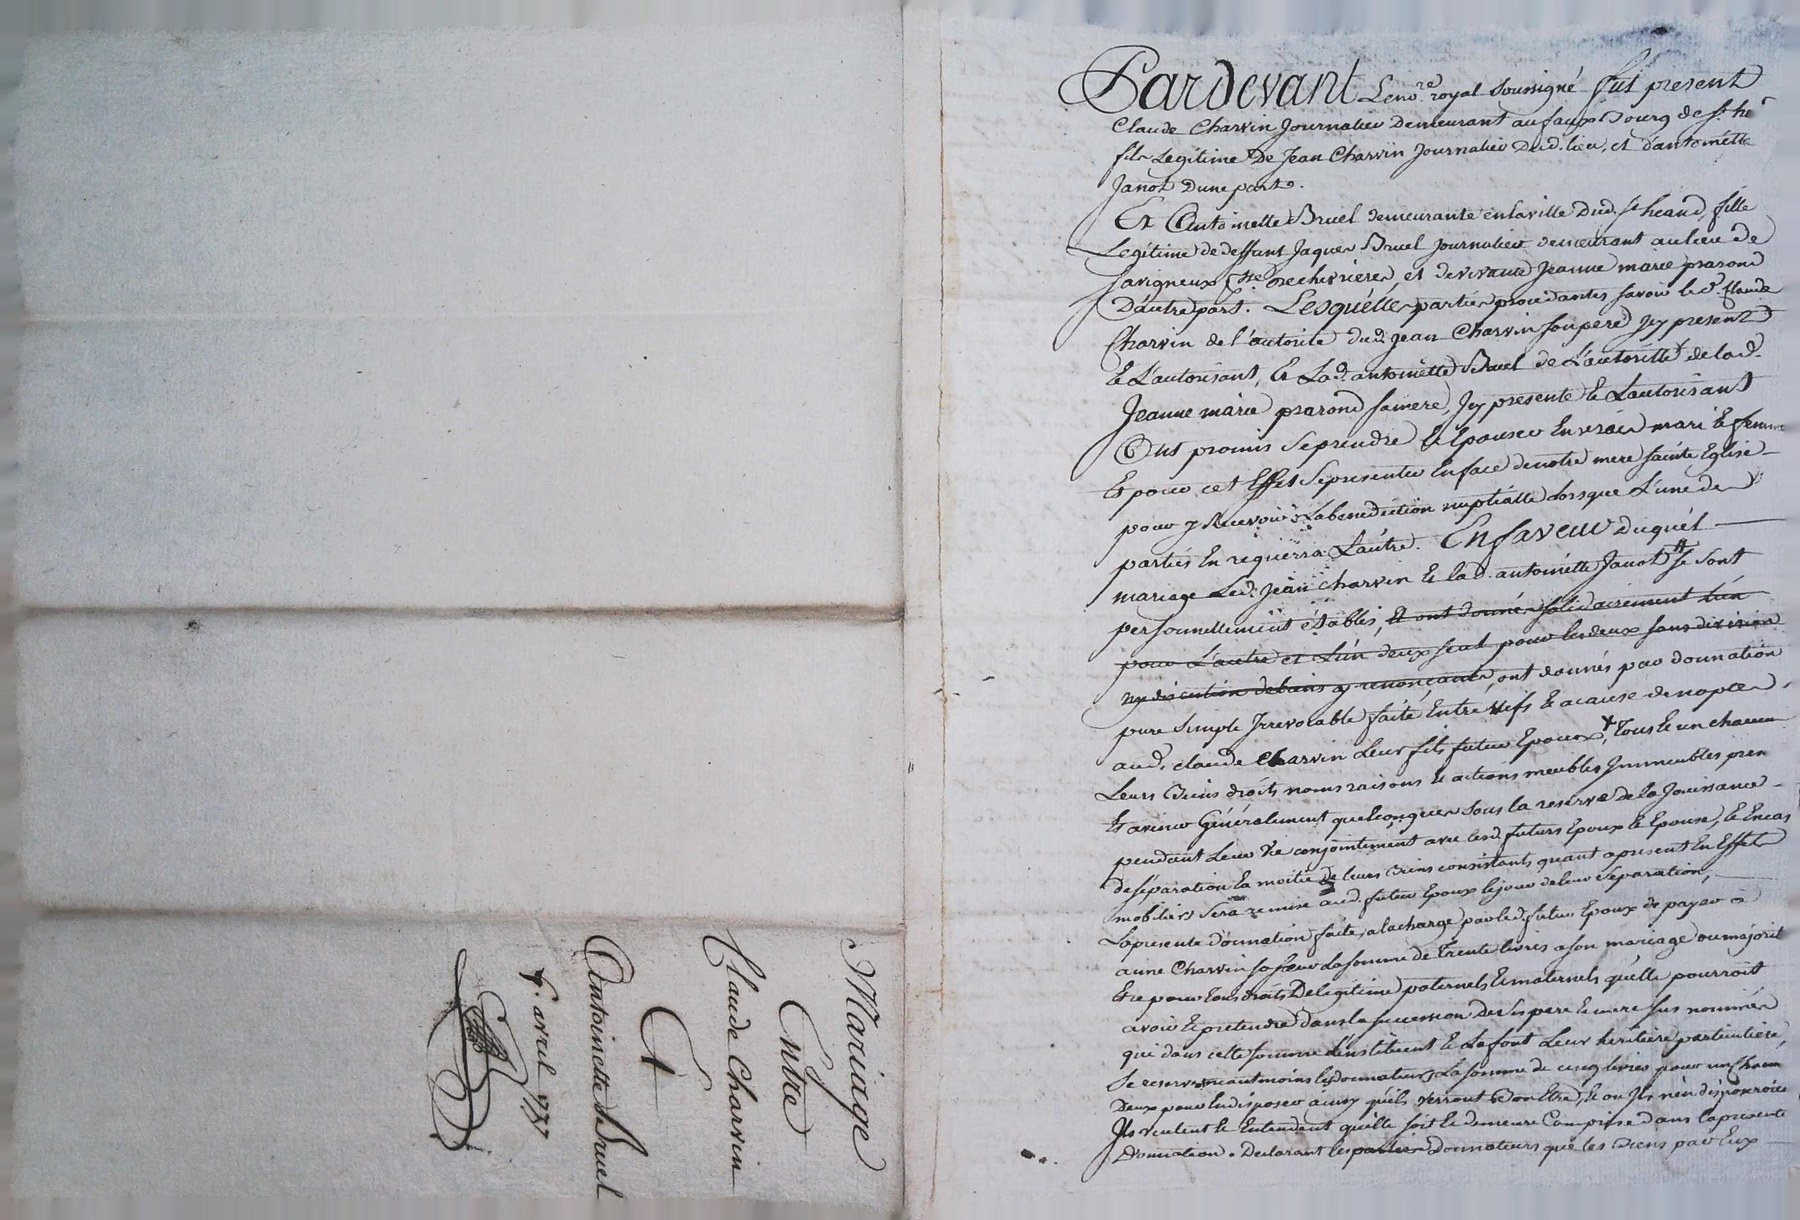 Mariage
Entre
Claude Charvin
Et
Antoinette Bruel
avril
Pardevant Le no.re royal soussigné fut present
Claude Charvin Journalier Demeurant au faux Bourg de St he
fils Legitime De Jean Charvin Journalier Dud. lieu, et d'antoinette
Janot Dune part.
Et Antoinette Bruel demeurante en la ville Dud. St heand, fille
Legitime de deffunt Jaques Bruel Journalier demeurant au lieu de
Savigneux, et de vivante Jeanne marie prarond
D'autre part. Lesquelles parties procedantes savoir le d. Claude
Charvin de l'autorité dud. Jean Charvin son pere Jcy present
Et L'autorisant, Et Lad. antoinette Bruel de L'autoritté de lad.
Jeanne marie prarond sa mere, Jcy presente Et Lautorisant
Ont promis se prendre Et Epouser En vrais mari Et femme
Et pour cet Effet se presenter En face de notre mere sainte Eglise
pour y Recevoir La benediction nuptialle Lorsque L'une des
parties En requerra Lautre. En faveur Duquel
mariage Led. Jean Charvin Et lad. antoinette Janot se sont
personnellement établis, Et ont donnés solidairement Lun
pour L'autre et Lun deux seul pour les deux sans division
ny discution de biens y renonçants, ont donnés par donnation
pure simple Jrrevocable faite Entre vifs Et a cause de nopces
aud. claude Charvin Leur fils futur Epoux, Tous Et un chacun
Leurs Biens droits noms raisons Et actions meubles Jmmeubles presen
Et avenir Généralement quelconques sous la reserve de la Jouissance
pendant Leur Vie conjointement avec lesd. futurs Epoux Et Epouse, Et En cas
de séparation La moitié de leurs Biens consistants quant a present En Effets
mobiliers sera remise aud. futur Epoux le jour de leur separation,
La presente donnation faite, a la charge par led. futur Epoux de payer a
anne Charvin sa sœur La somme de Trente livres a son mariage ou majorit
Et ce pour tous droits De legitime paternels Et maternels qu'elle pourroit
avoir Et pretendre Dans la succession des pere Et mere sus nommés
qui dans cette somme L'instituent Et La font Leur héritiere particuliere,
Se reservent neantmoins les donnateurs La somme de cinq livres pour un Chacun
Deux pour En disposer ainsy qu'ils verront Bon Etre, Et ou Jls n'en disposeroie
Jls veulent Et Entendent qu'elle soit Et demeure Comprise dans la presente
Donnation. Declarant les parties donnateurs que les Biens par Eux